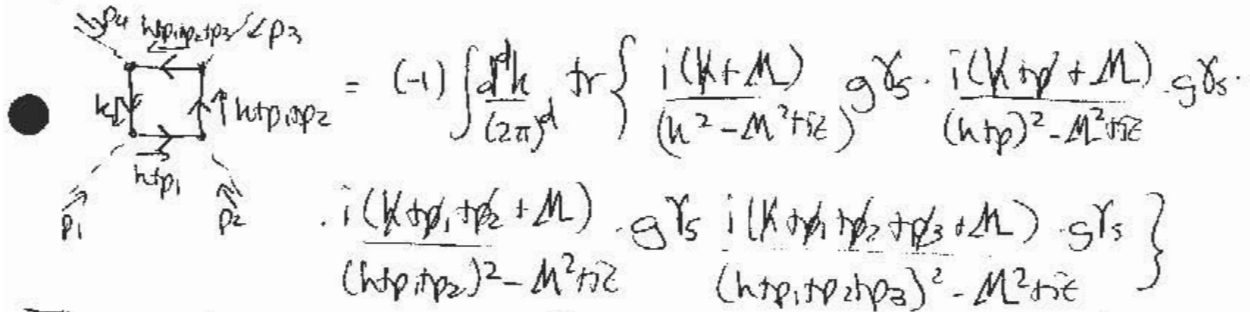 p₄ k+p₁+p₂+p₃ ↙p₃
k k+p₁+p₂
k+p₁
p₁ p₂
= (-1) ∫ dᵈk/(2π)ᵈ tr { i(k̸+M)/(k²-M²+iε) gγ₅ · i(k̸+p̸+M)/((k+p)²-M²+iε) · gγ₅ ·
· i(k̸+p̸₁+p̸₂+M)/((k+p₁+p₂)²-M²+iε) · gγ₅ i(k̸+p̸₁+p̸₂+p̸₃+M)/((k+p₁+p₂+p₃)²-M²+iε) · gγ₅ }